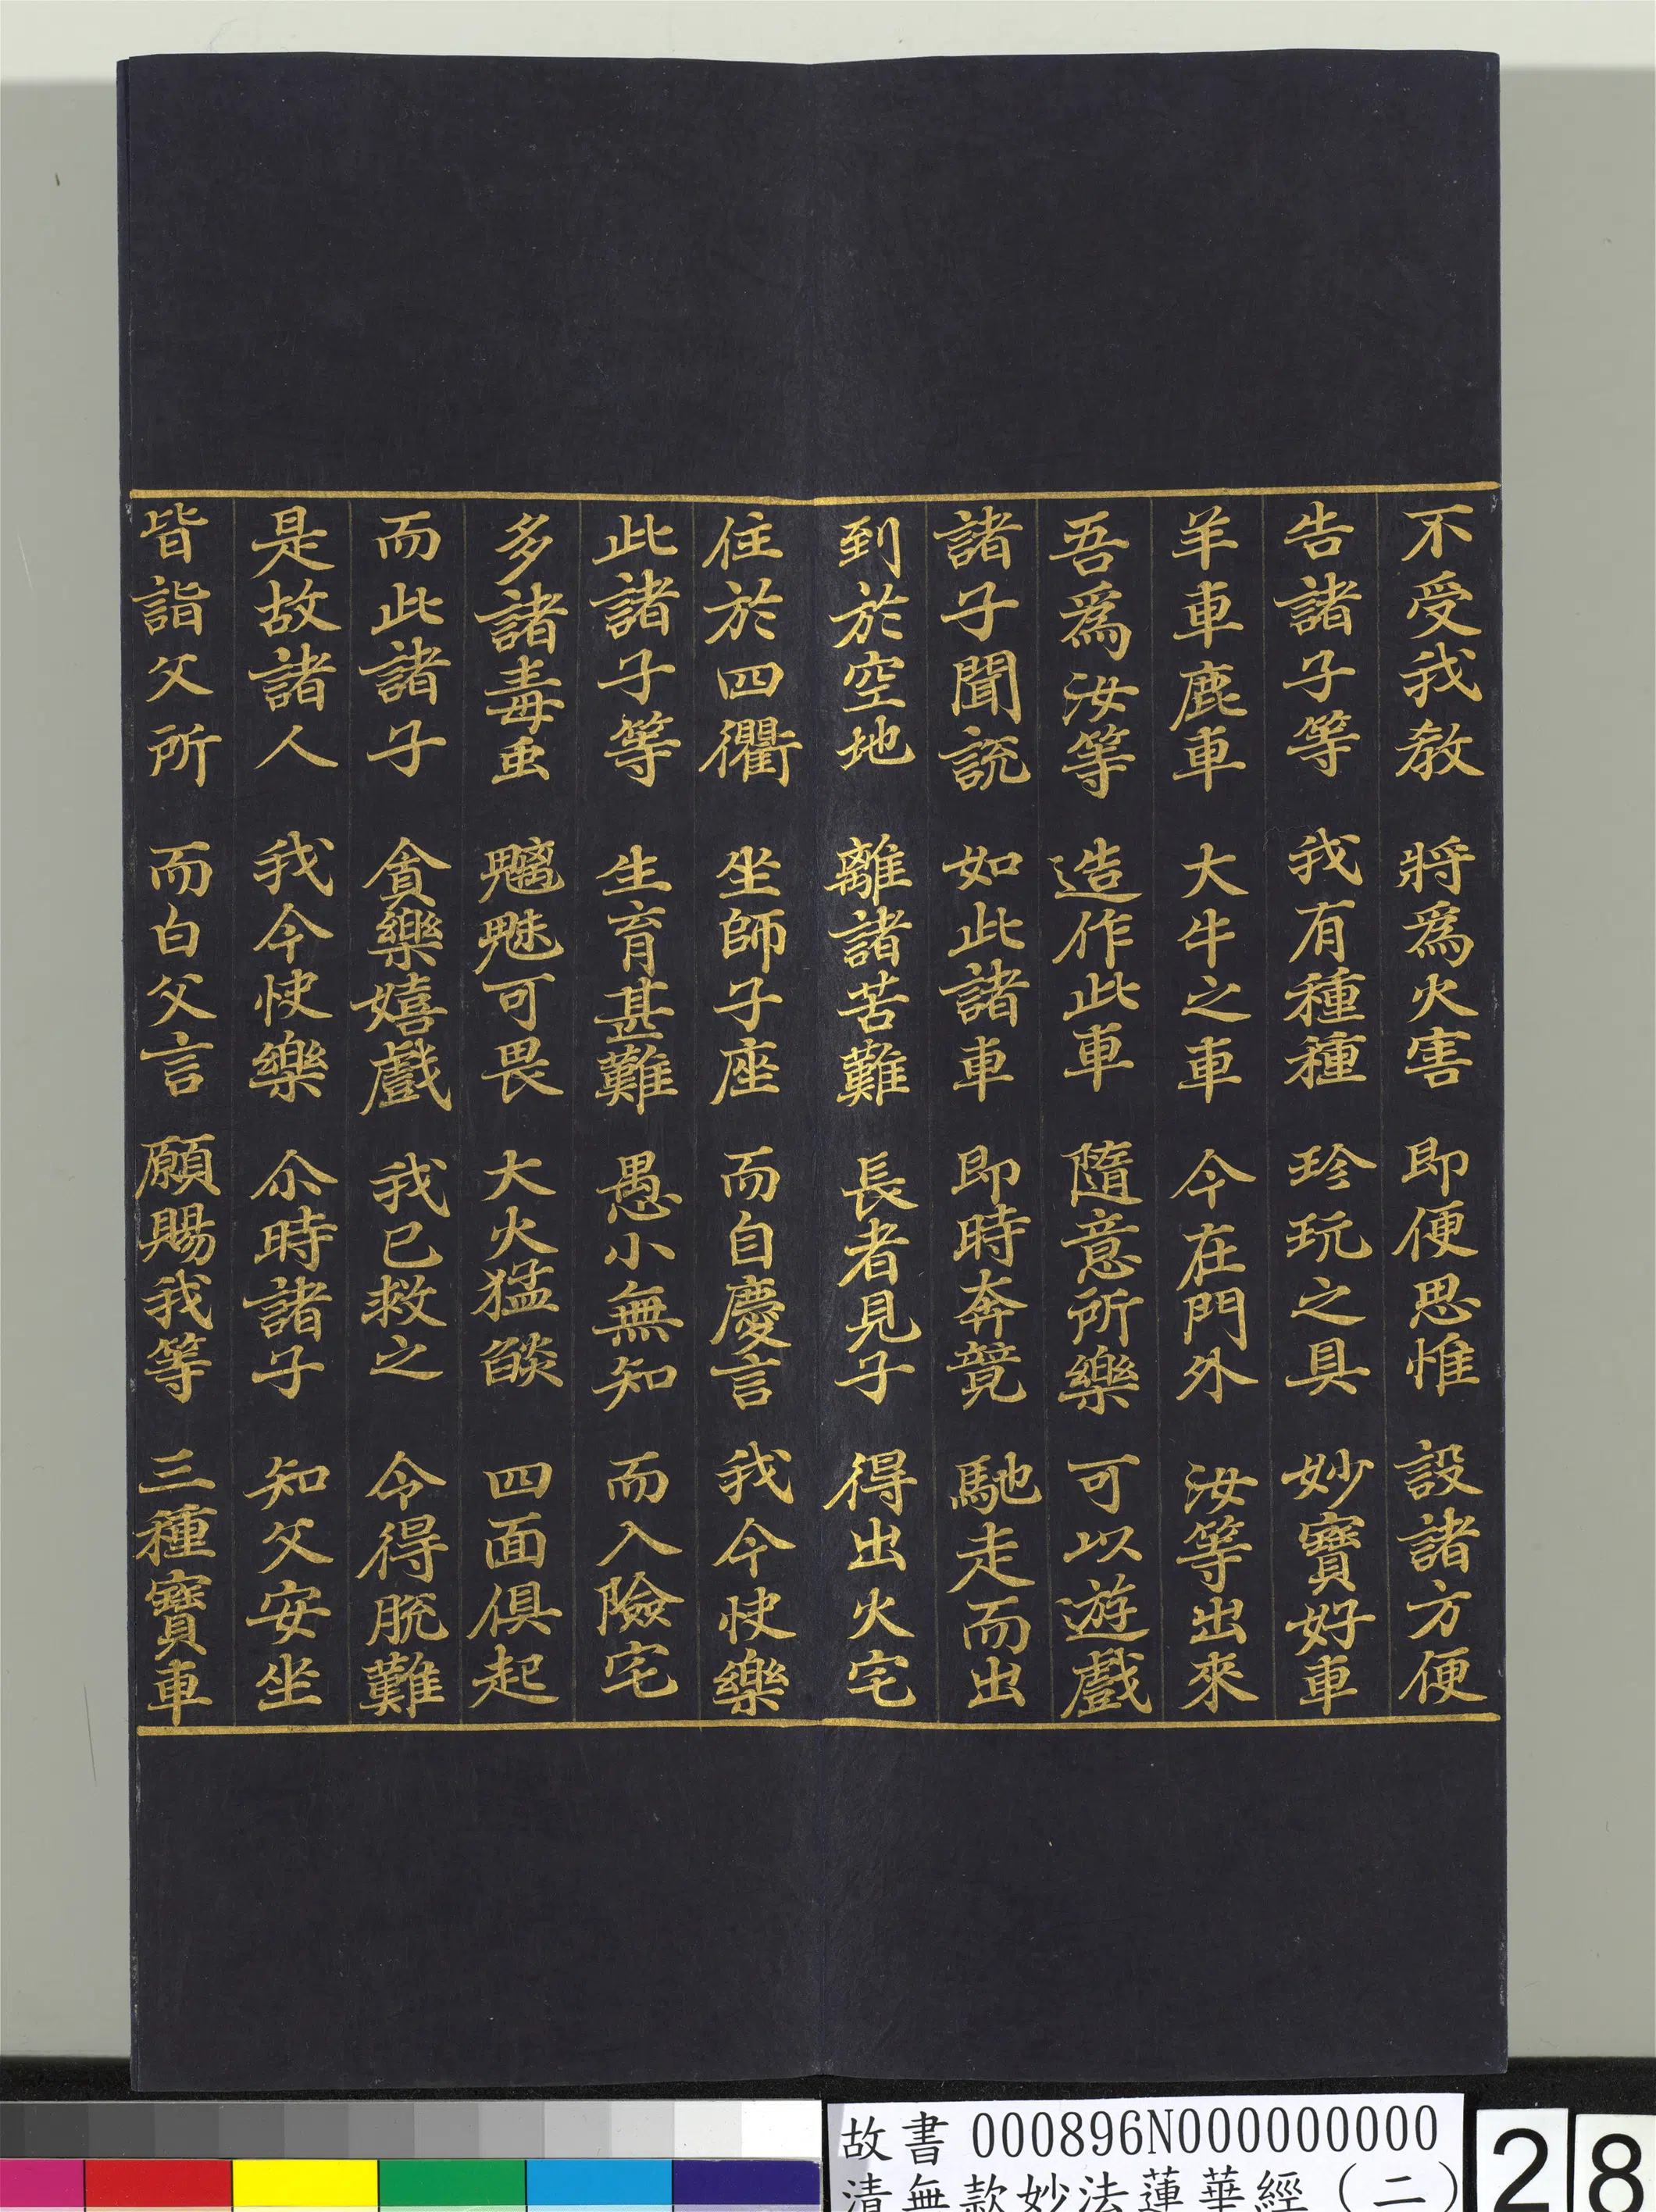 不受我教 將爲火害 即便思惟 設諸方便
告諸子等 我有種種 珍玩之具 妙寶好車
羊車鹿車 大牛之車 今在門外 汝等出來
吾爲汝等 造作此車 隨意所樂 可以遊戲
諸子聞說 如此諸車 即時奔競 馳走而出
到於空地 離諸苦難 長者見子 得出火宅
住於四衢 坐師子座 而自慶言 我今快樂
此諸子等 生育甚難 愚小無知 而入險宅
多諸毒虫 魑魅可畏 大火猛燄 四面俱起
而此諸子 貪樂嬉戲 我已救之 令得脫難
是故諸人 我今快樂 尒時諸子 知父安坐
皆詣父所 而白父言 願賜我等 三種寶車
故書 000896N000000000
清無款妙法蓮華經(二)
28